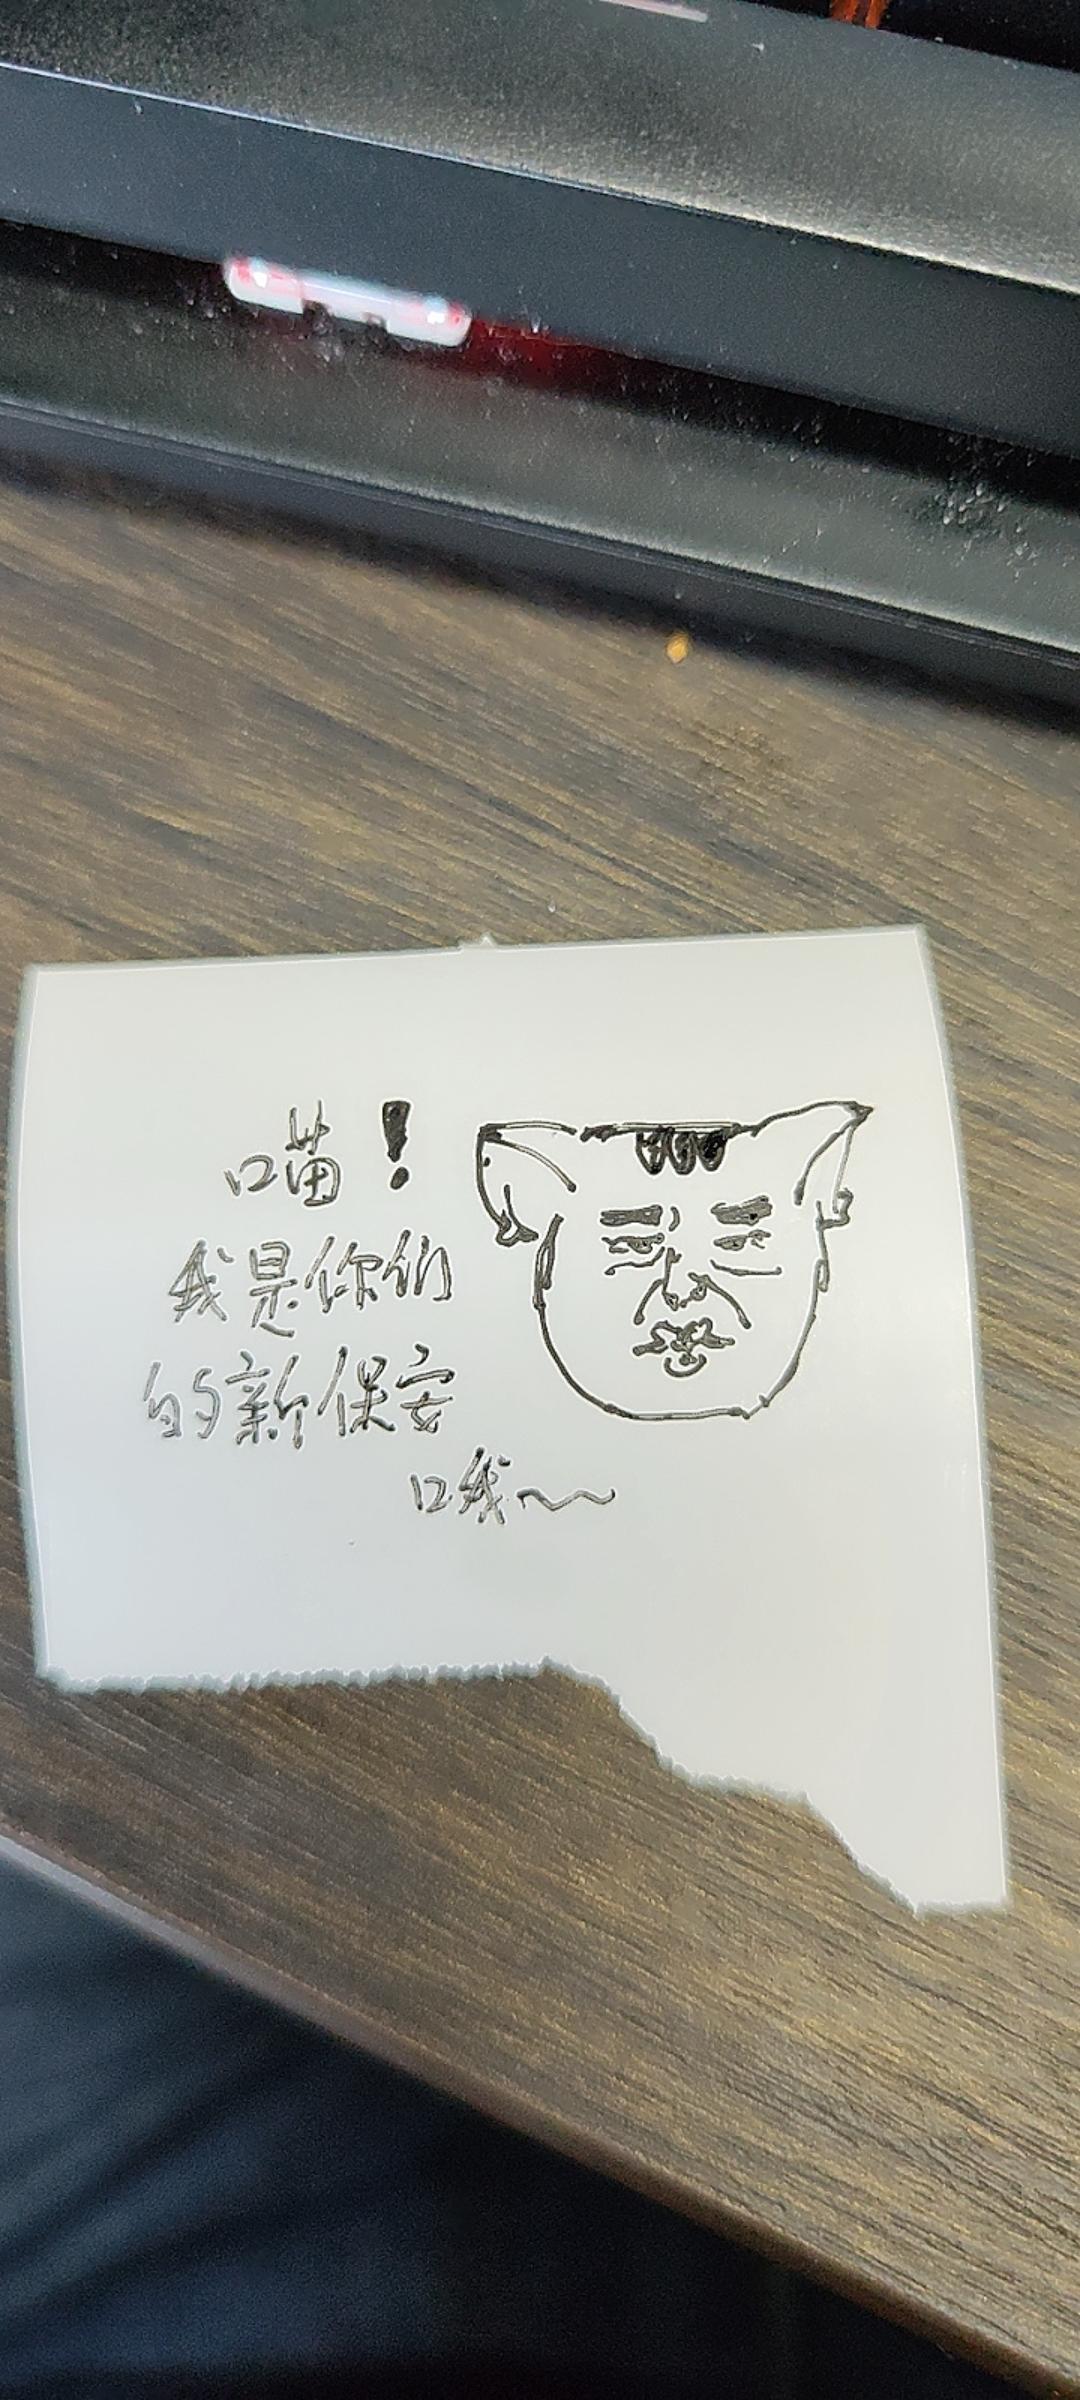 喵！
我是你们
的新保安
哦～～